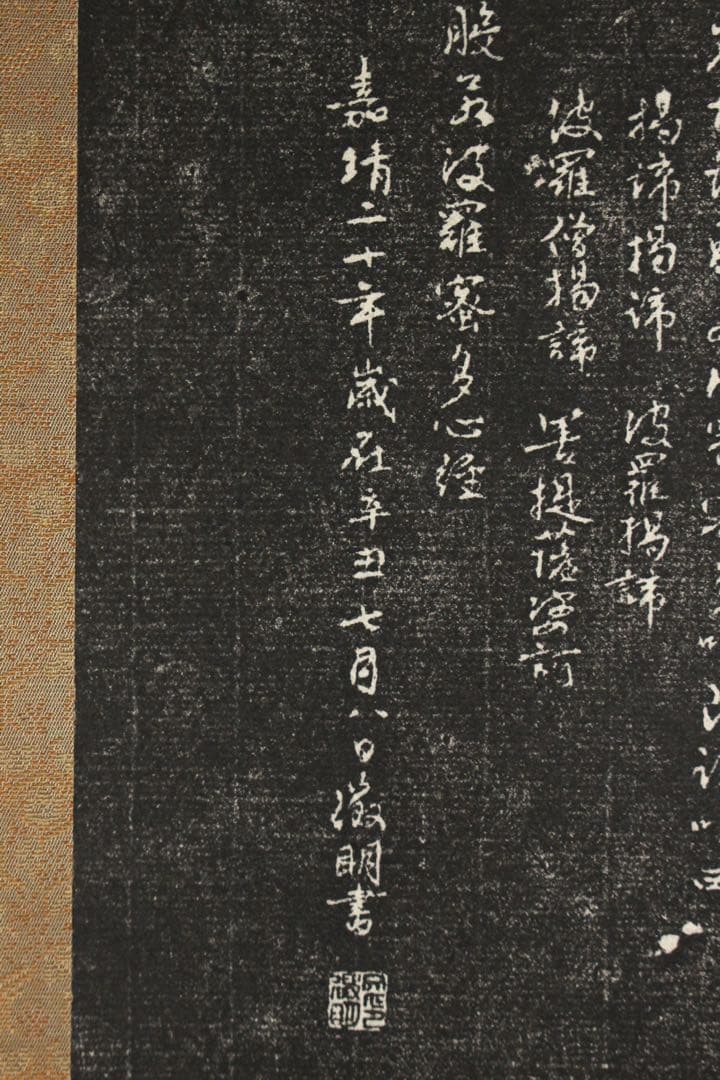 揭諦揭諦 波羅揭諦
波羅僧揭諦 菩提薩婆訶
般若波羅蜜多心經
嘉靖二十年歲在辛丑七月八日徵明書